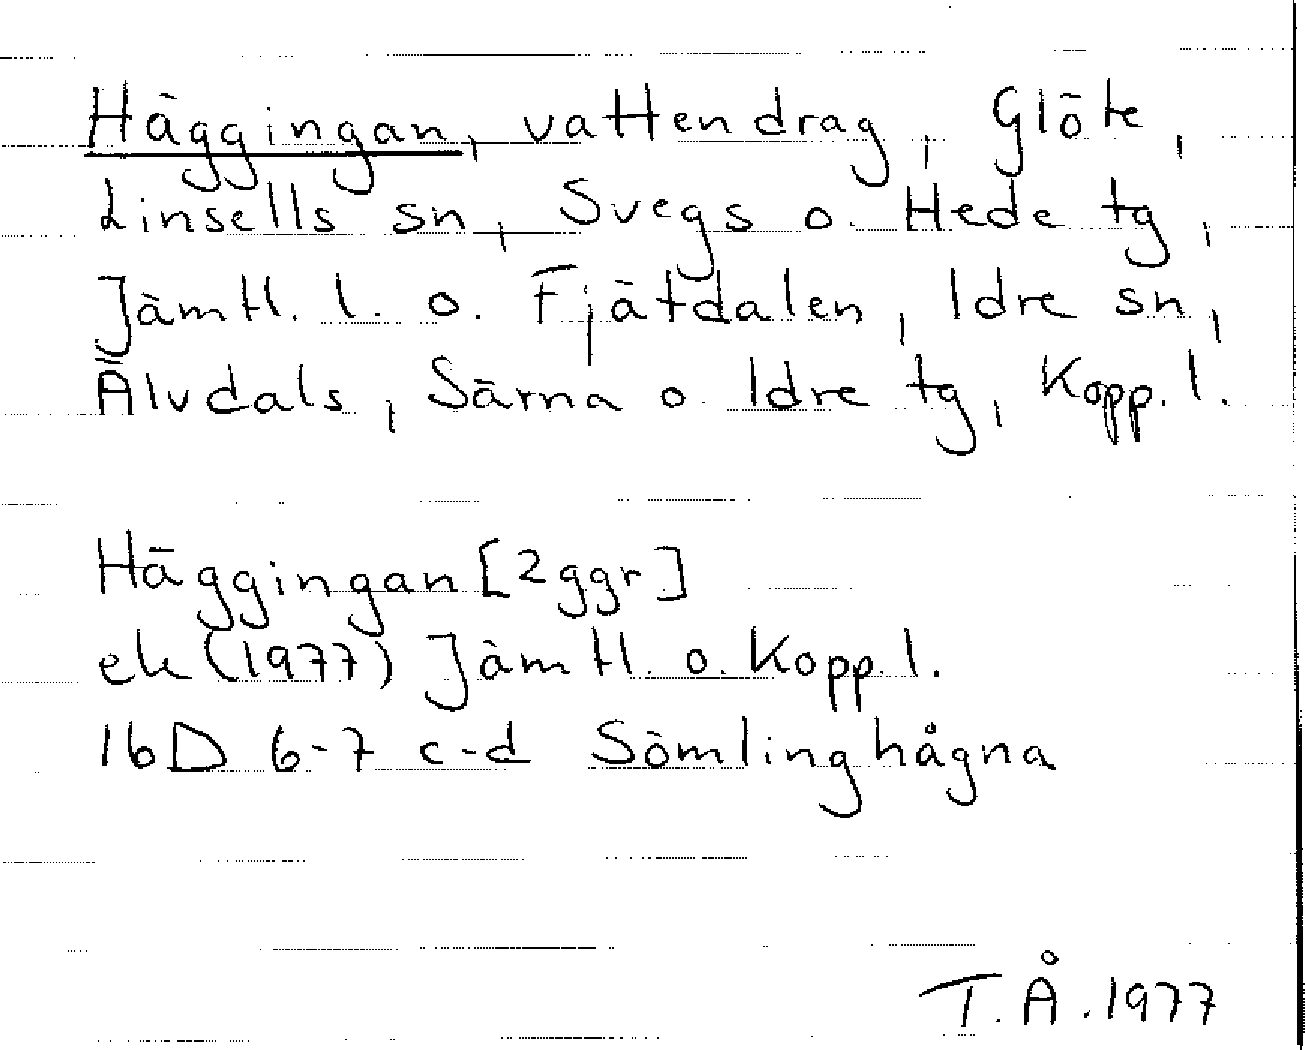 Häggingan, vattendrag, Glöte,
Linsells sn, Svegs o. Hede tg,
Jämtl. l. o. Fjätdalen, Idre sn,
Älvdals, Särna o Idre tg, Kopp. l.
Häggingan [2 ggr]
ek (1977) Jämtl. o. Kopp. l.
16D 6-7 c-d Sömlinghågna
T. Å. 1977